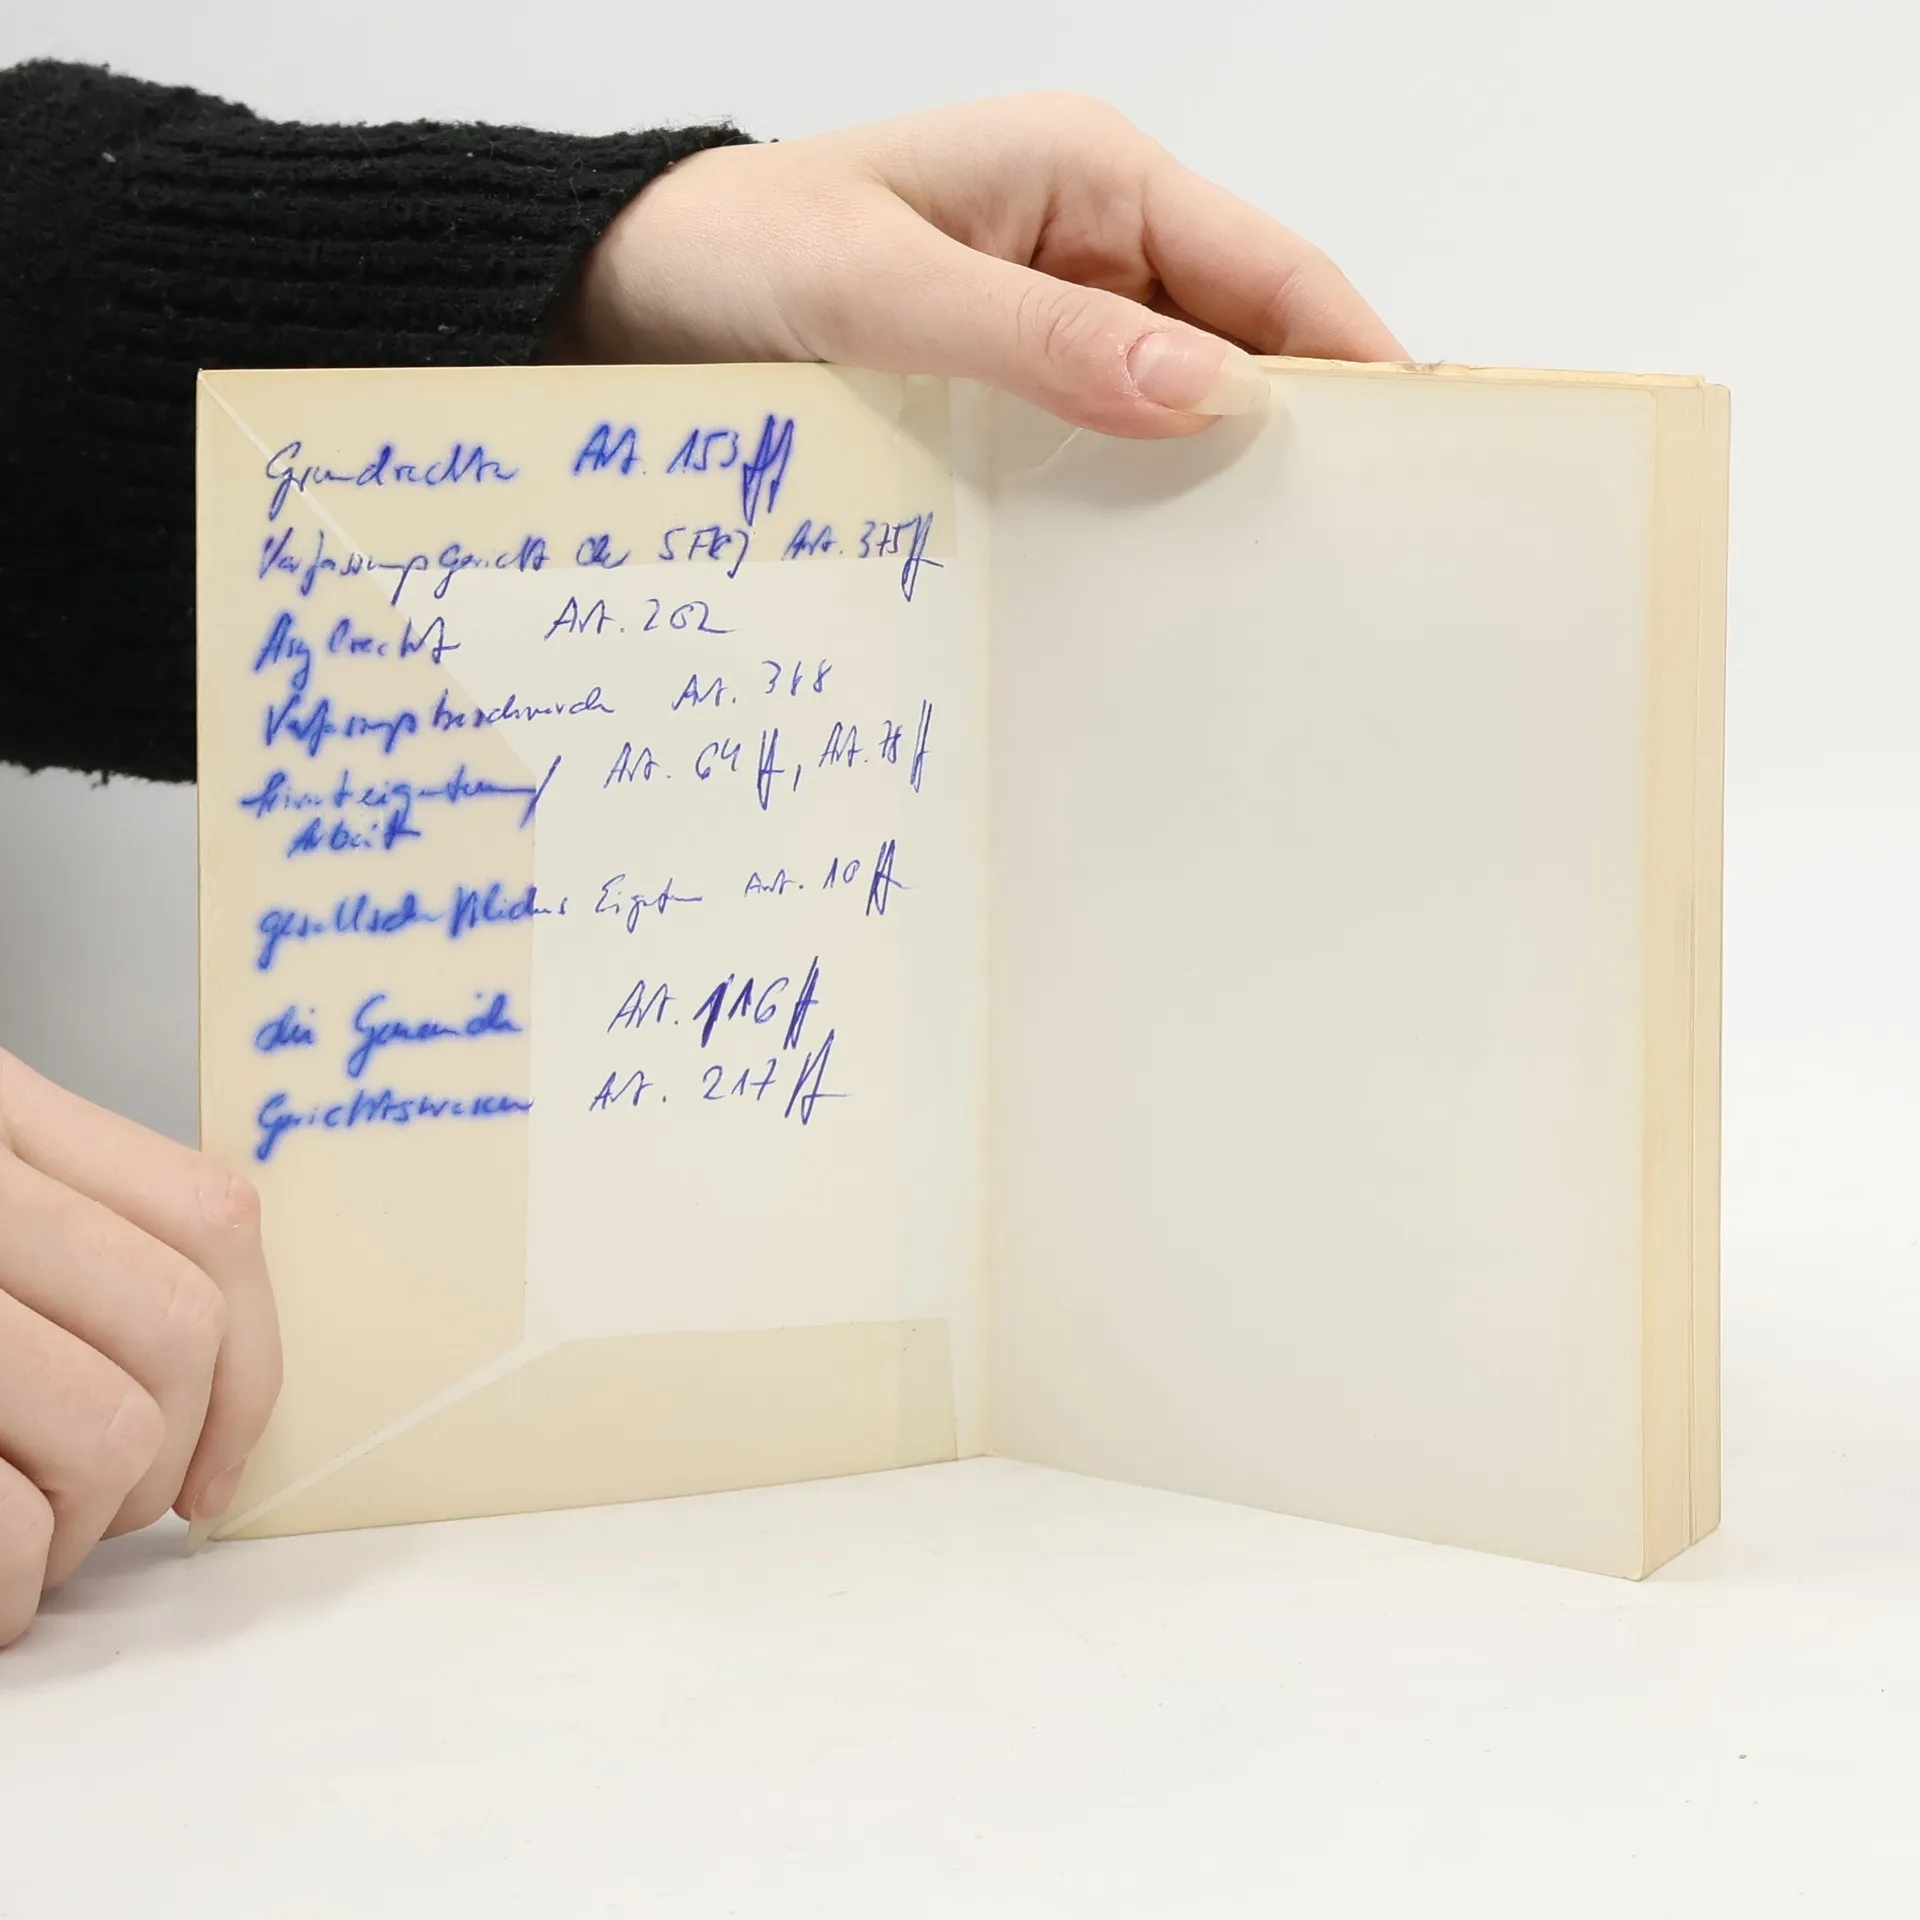 Grundrechte Art. 153 ff
Verfassungsgericht der SFRJ Art. 375 ff
Asylrecht Art. 202
Verfassungsbeschwerde Art. 
Privateigentum / Art. 64 ff, Art. 78 ff
Arbeit
gesellschaftliches Eigentum Art. 10 ff
die Gemeinde Art. 116 ff
Gerichtswesen Art. 217 ff